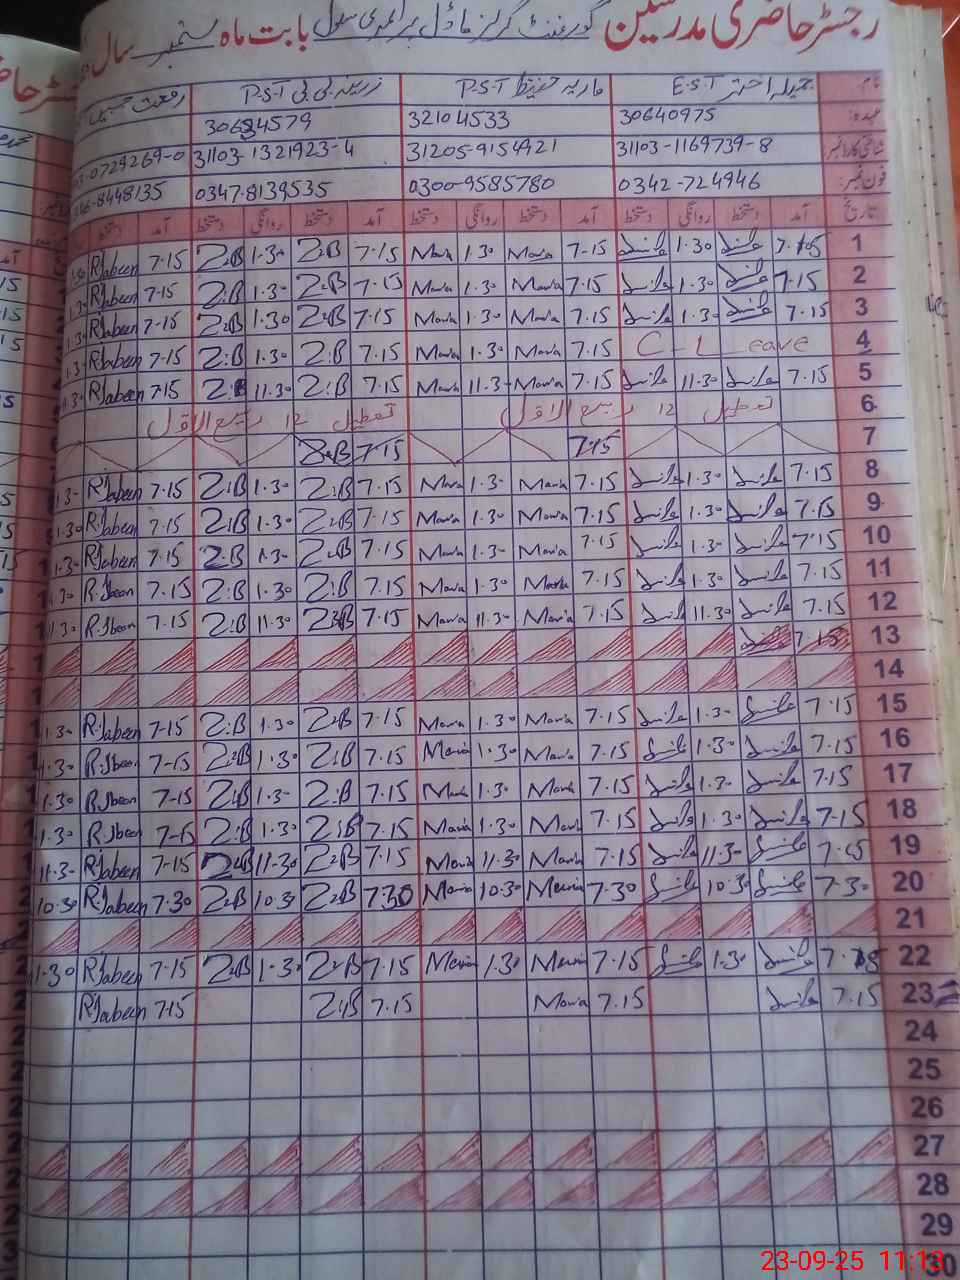 رجسٹر حاضری مدرسین گورنمنٹ گرلز ماڈل پرائمری سکول بابت ماہ ستمبر سال
نام جمیلہ اختر E.S.T ماریہ حفیظ P.S.T زرینہ بی بی P.S.T رفعت جبین
عہدہ: 30640975 32104533 30634579
شناختی کارڈ نمبر 31103-1169739-8 31205-9154921 31103-1321923-4 0729269-0
فون نمبر: 0342-724946 0300-9585780 0347-8139535 8448135
تاریخ آمد دستخط روانگی دستخط آمد دستخط روانگی دستخط آمد دستخط روانگی دستخط آمد دستخط
1 7.15 جمیلہ 1.30 جمیلہ 7.15 Maria 1.30 Maria 7.15 Z.B 1.30 Z.B 7.15 R.Jabeen 1.30
2 7.15 جمیلہ 1.30 جمیلہ 7.15 Maria 1.30 Maria 7.15 Z.B 1.30 Z.B 7.15 R.Jabeen 1.30
3 7.15 جمیلہ 1.30 جمیلہ 7.15 Maria 1.30 Maria 7.15 Z.B 1.30 Z.B 7.15 R.Jabeen 1.30
4 C L eave 7.15 Maria 1.30 Maria 7.15 Z.B 1.30 Z.B 7.15 R.Jabeen 1.30
5 7.15 جمیلہ 11.30 جمیلہ 7.15 Maria 11.30 Maria 7.15 Z.B 11.30 Z.B 7.15 R.Jabeen 11.30
6 تعطیل 12 ربیع الاول تعطیل 12 ربیع الاول
7 7.15 7.15 Z.B
8 7.15 جمیلہ 1.30 جمیلہ 7.15 Maria 1.30 Maria 7.15 Z.B 1.30 Z.B 7.15 R.Jabeen 1.30
9 7.15 جمیلہ 1.30 جمیلہ 7.15 Maria 1.30 Maria 7.15 Z.B 1.30 Z.B 7.15 R.Jabeen 1.30
10 7.15 جمیلہ 1.30 جمیلہ 7.15 Maria 1.30 Maria 7.15 Z.B 1.30 Z.B 7.15 R.Jabeen 1.30
11 7.15 جمیلہ 1.30 جمیلہ 7.15 Maria 1.30 Maria 7.15 Z.B 1.30 Z.B 7.15 R.Jbeen 1.30
12 7.15 جمیلہ 11.30 جمیلہ 7.15 Maria 11.30 Maria 7.15 Z.B 11.30 Z.B 7.15 R.Jbeen 11.30
13 7.15 جمیلہ
14
15 7.15 جمیلہ 1.30 جمیلہ 7.15 Maria 1.30 Maria 7.15 Z.B 1.30 Z.B 7.15 R.Jabeen 1.30
16 7.15 جمیلہ 1.30 جمیلہ 7.15 Maria 1.30 Maria 7.15 Z.B 1.30 Z.B 7.15 R.Jbeen 1.30
17 7.15 جمیلہ 1.30 جمیلہ 7.15 Maria 1.30 Maria 7.15 Z.B 1.30 Z.B 7.15 R.Jbeen 1.30
18 7.15 جمیلہ 1.30 جمیلہ 7.15 Maria 1.30 Maria 7.15 Z.B 1.30 Z.B 7.15 R.Jbeen 1.30
19 7.15 جمیلہ 11.30 جمیلہ 7.15 Maria 11.30 Maria 7.15 Z.B 11.30 Z.B 7.15 R.Jabeen 11.30
20 7.30 جمیلہ 10.30 جمیلہ 7.30 Maria 10.30 Maria 7.30 Z.B 10.30 Z.B 7.30 R.Jabeen 10.30
21
22 7.15 جمیلہ 1.30 جمیلہ 7.15 Maria 1.30 Maria 7.15 Z.B 1.30 Z.B 7.15 R.Jabeen 1.30
23 7.15 جمیلہ 7.15 Maria 7.15 Z.B 7.15 R.Jabeen
24
25
26
27
28
29
30
23-09-25 11:13